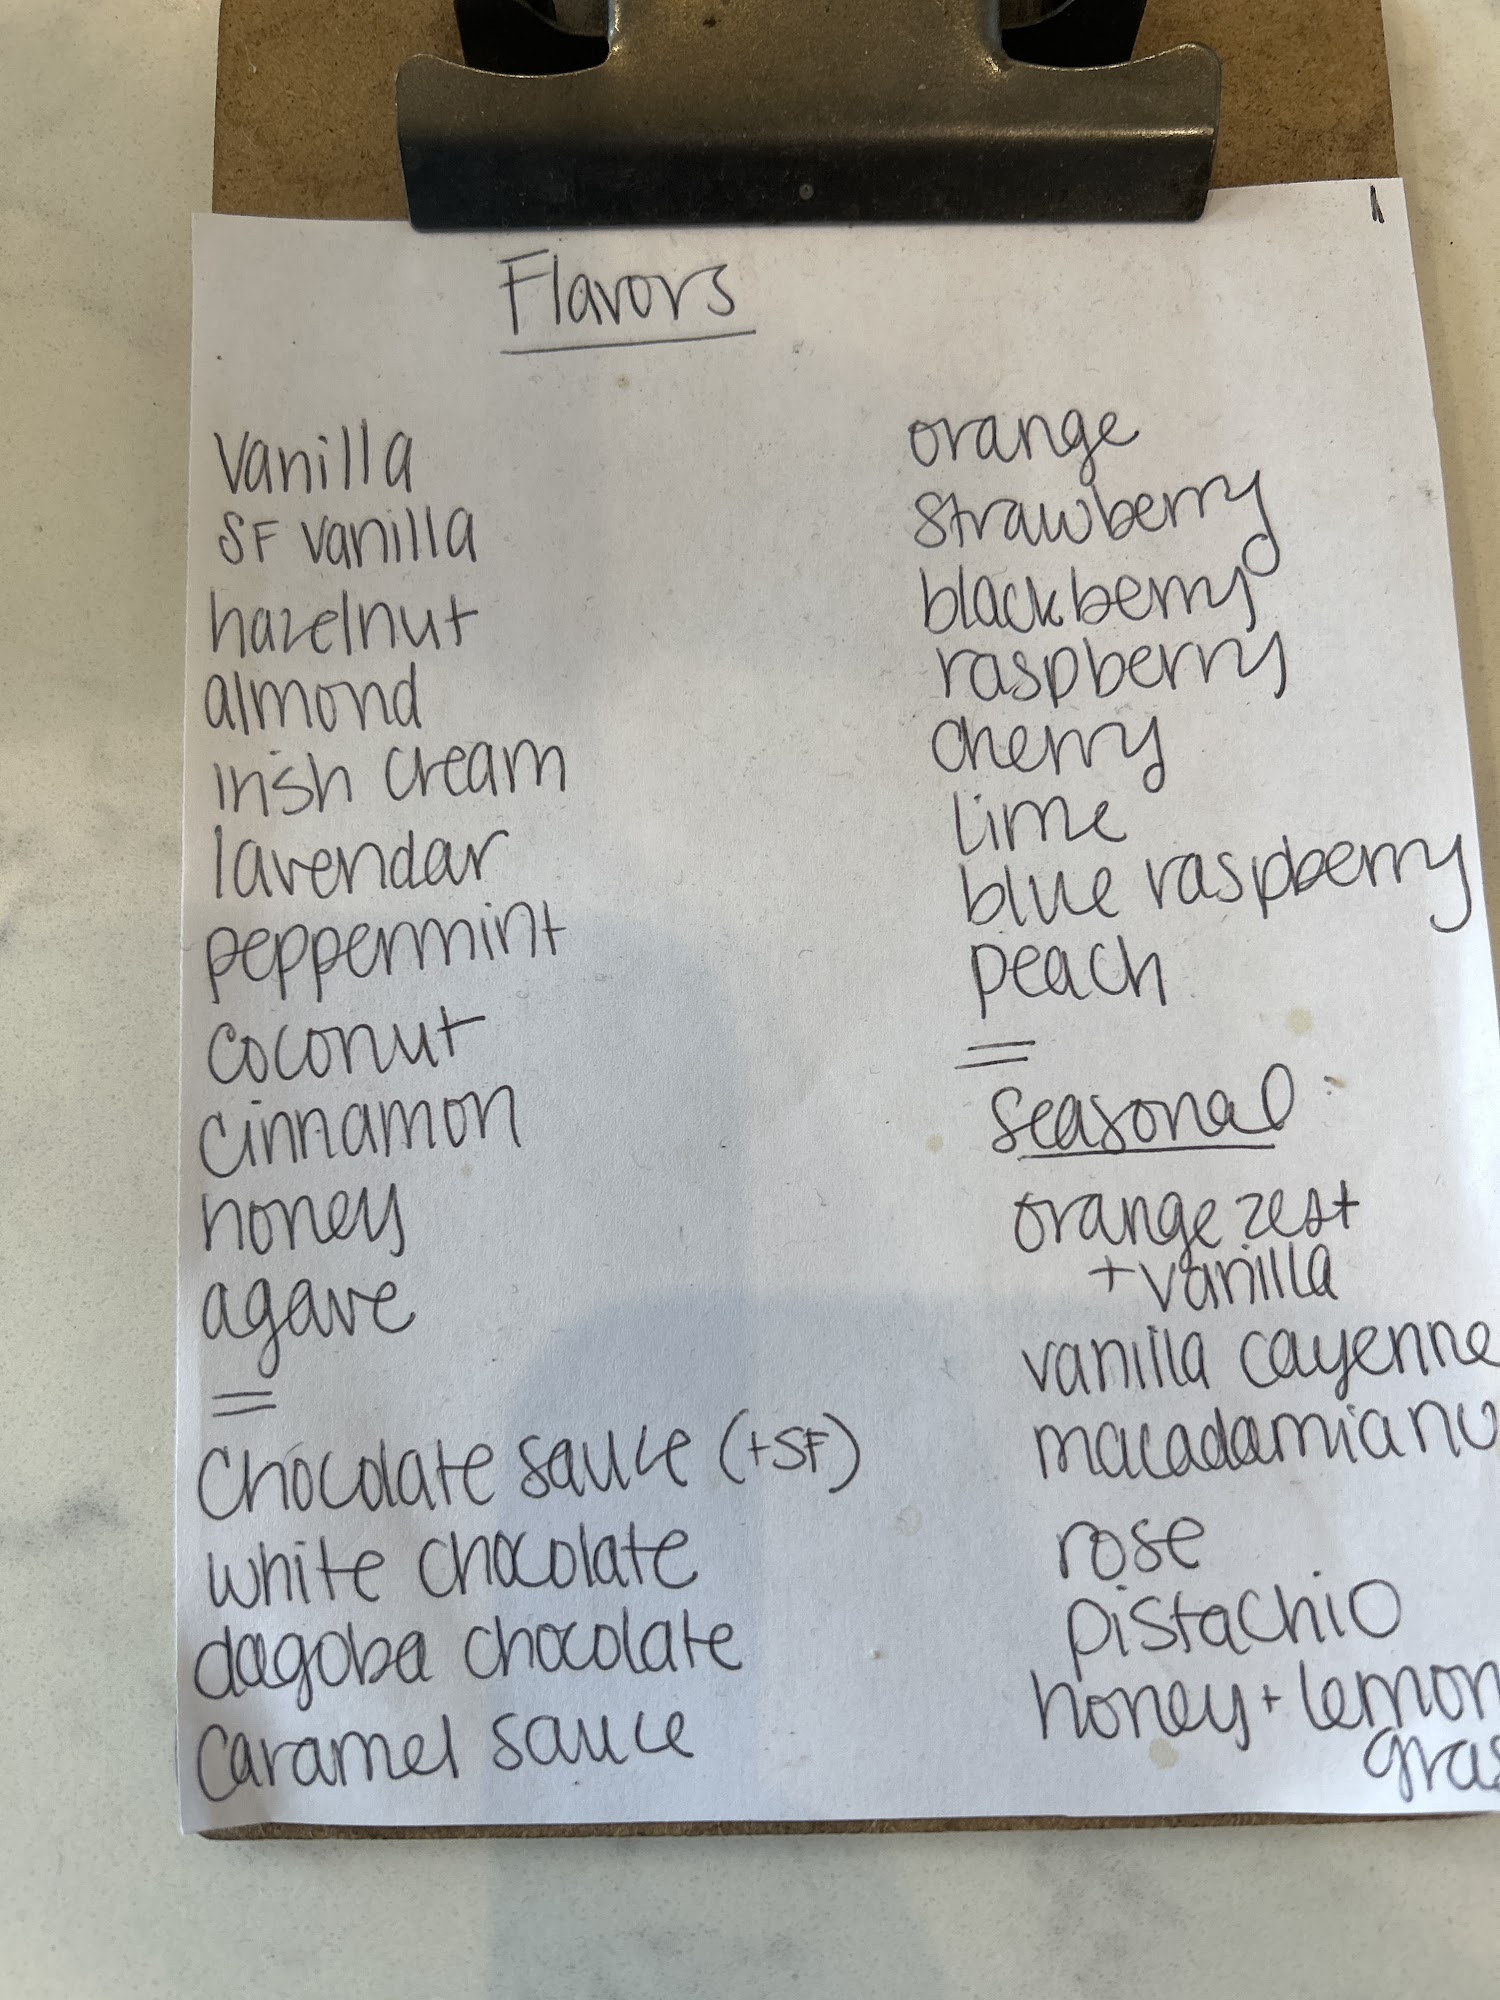 Flavors
vanilla
SF vanilla
hazelnut
almond
irish cream
lavendar
peppermint
coconut
cinnamon
honey
agave
=
chocolate sauce (+SF)
white chocolate
dagoba chocolate
caramel sauce
orange
strawberry
blackberry
raspberry
cherry
lime
blue raspberry
peach
=
Seasonal:
orange zest
+ vanilla
vanilla cayenne
macadamia nu
rose
pistachio
honey + lemon
gras